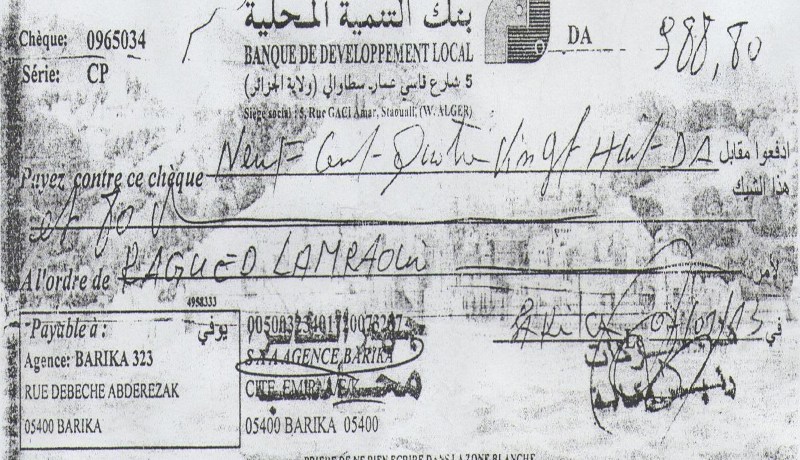 Chèque: 0965034
Série: CP
بنك التنمية المحلية
BANQUE DE DEVELOPPEMENT LOCAL
5 شارع قاسي عمار سطاوالي (ولاية الجزائر)
Siège social : 5, Rue GACI Amar, Staouali, (W. ALGER)
DA 988,80
Payez contre ce chèque Neuf Cent Quatre Vingt Huit DA ادفعوا مقابل هذا الشيك
et 80
A l'ordre de RAGUED LAMRAOUI لأمر
4958333
Payable à : يوفي
Agence: BARIKA 323
RUE DEBECHE ABDEREZAK
05400 BARIKA
S.A.A AGENCE BARIKA
CITE EMIR
05400 BARIKA 05400
محاسب
في
PRIERE DE NE RIEN ECRIRE DANS LA ZONE BLANCHE